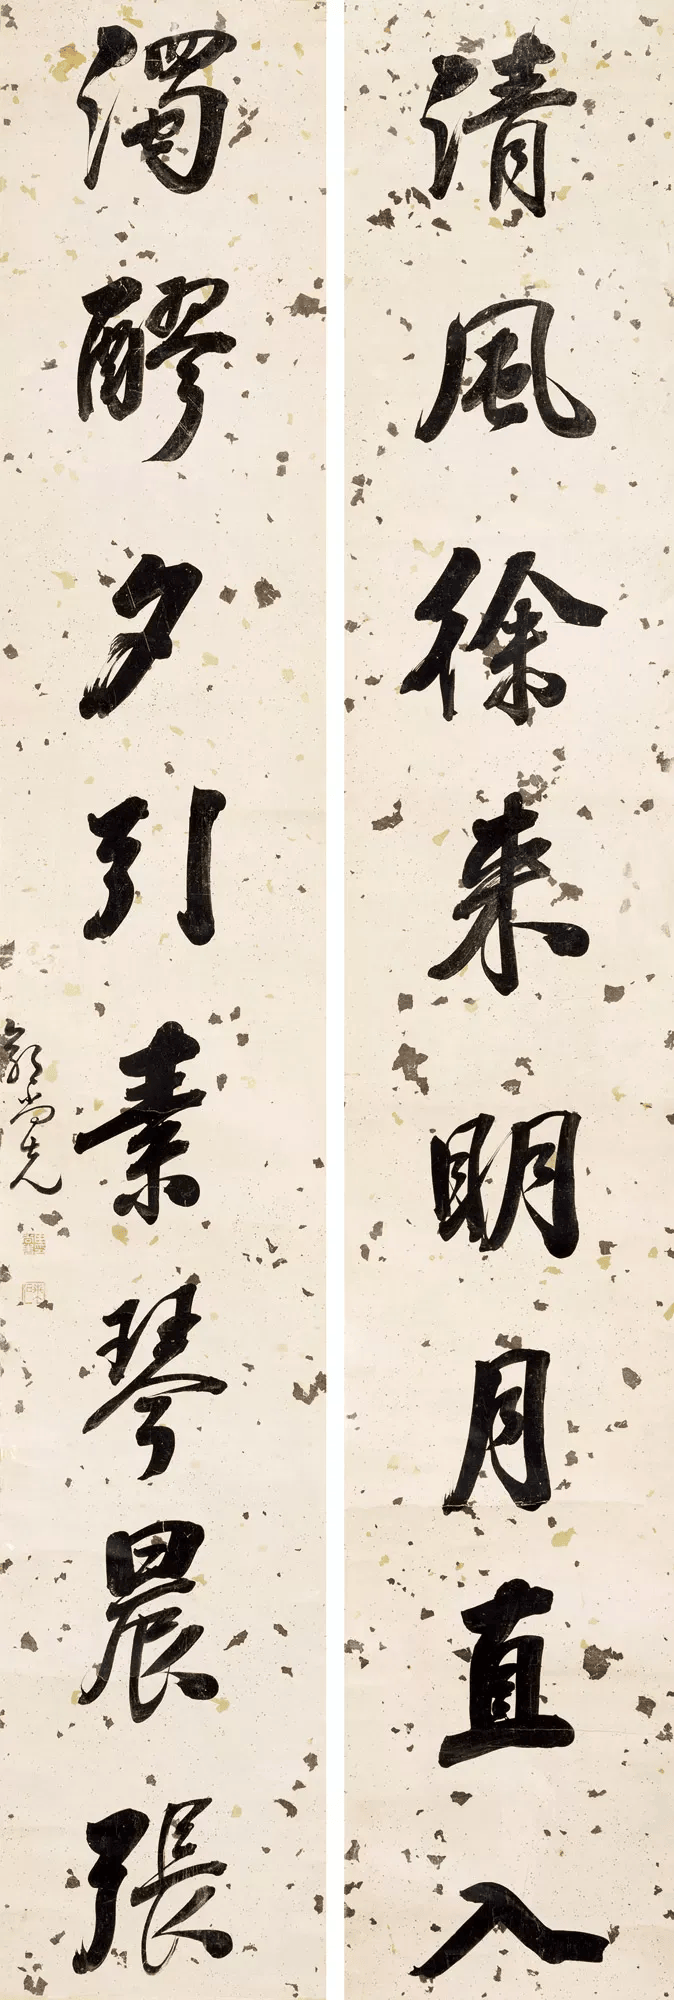 清風徐来明月直入
濁醪夕引素琴晨張
郭尚先